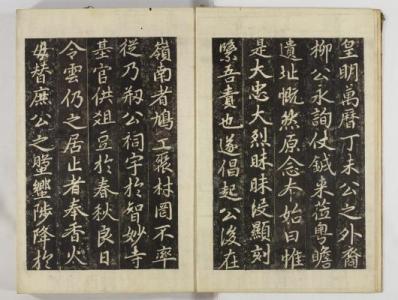 皇明萬曆丁未公之外裔
柳公永詢仗鉞来莅粤瞻
遺址慨然原念夲始曰惟
是大忠大烈昧昧侵顯刻
繄吾責也遂倡起公後在
嶺南者鳩工聚材罔不率
從乃剏公祠宇於智妙寺
基官供俎豆於春秋良日
令雲仍之居止者奉香火
毋替庶公之肹蠁陟降於